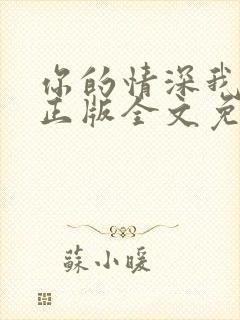 你的情深我
正版全文免
蘇小暖